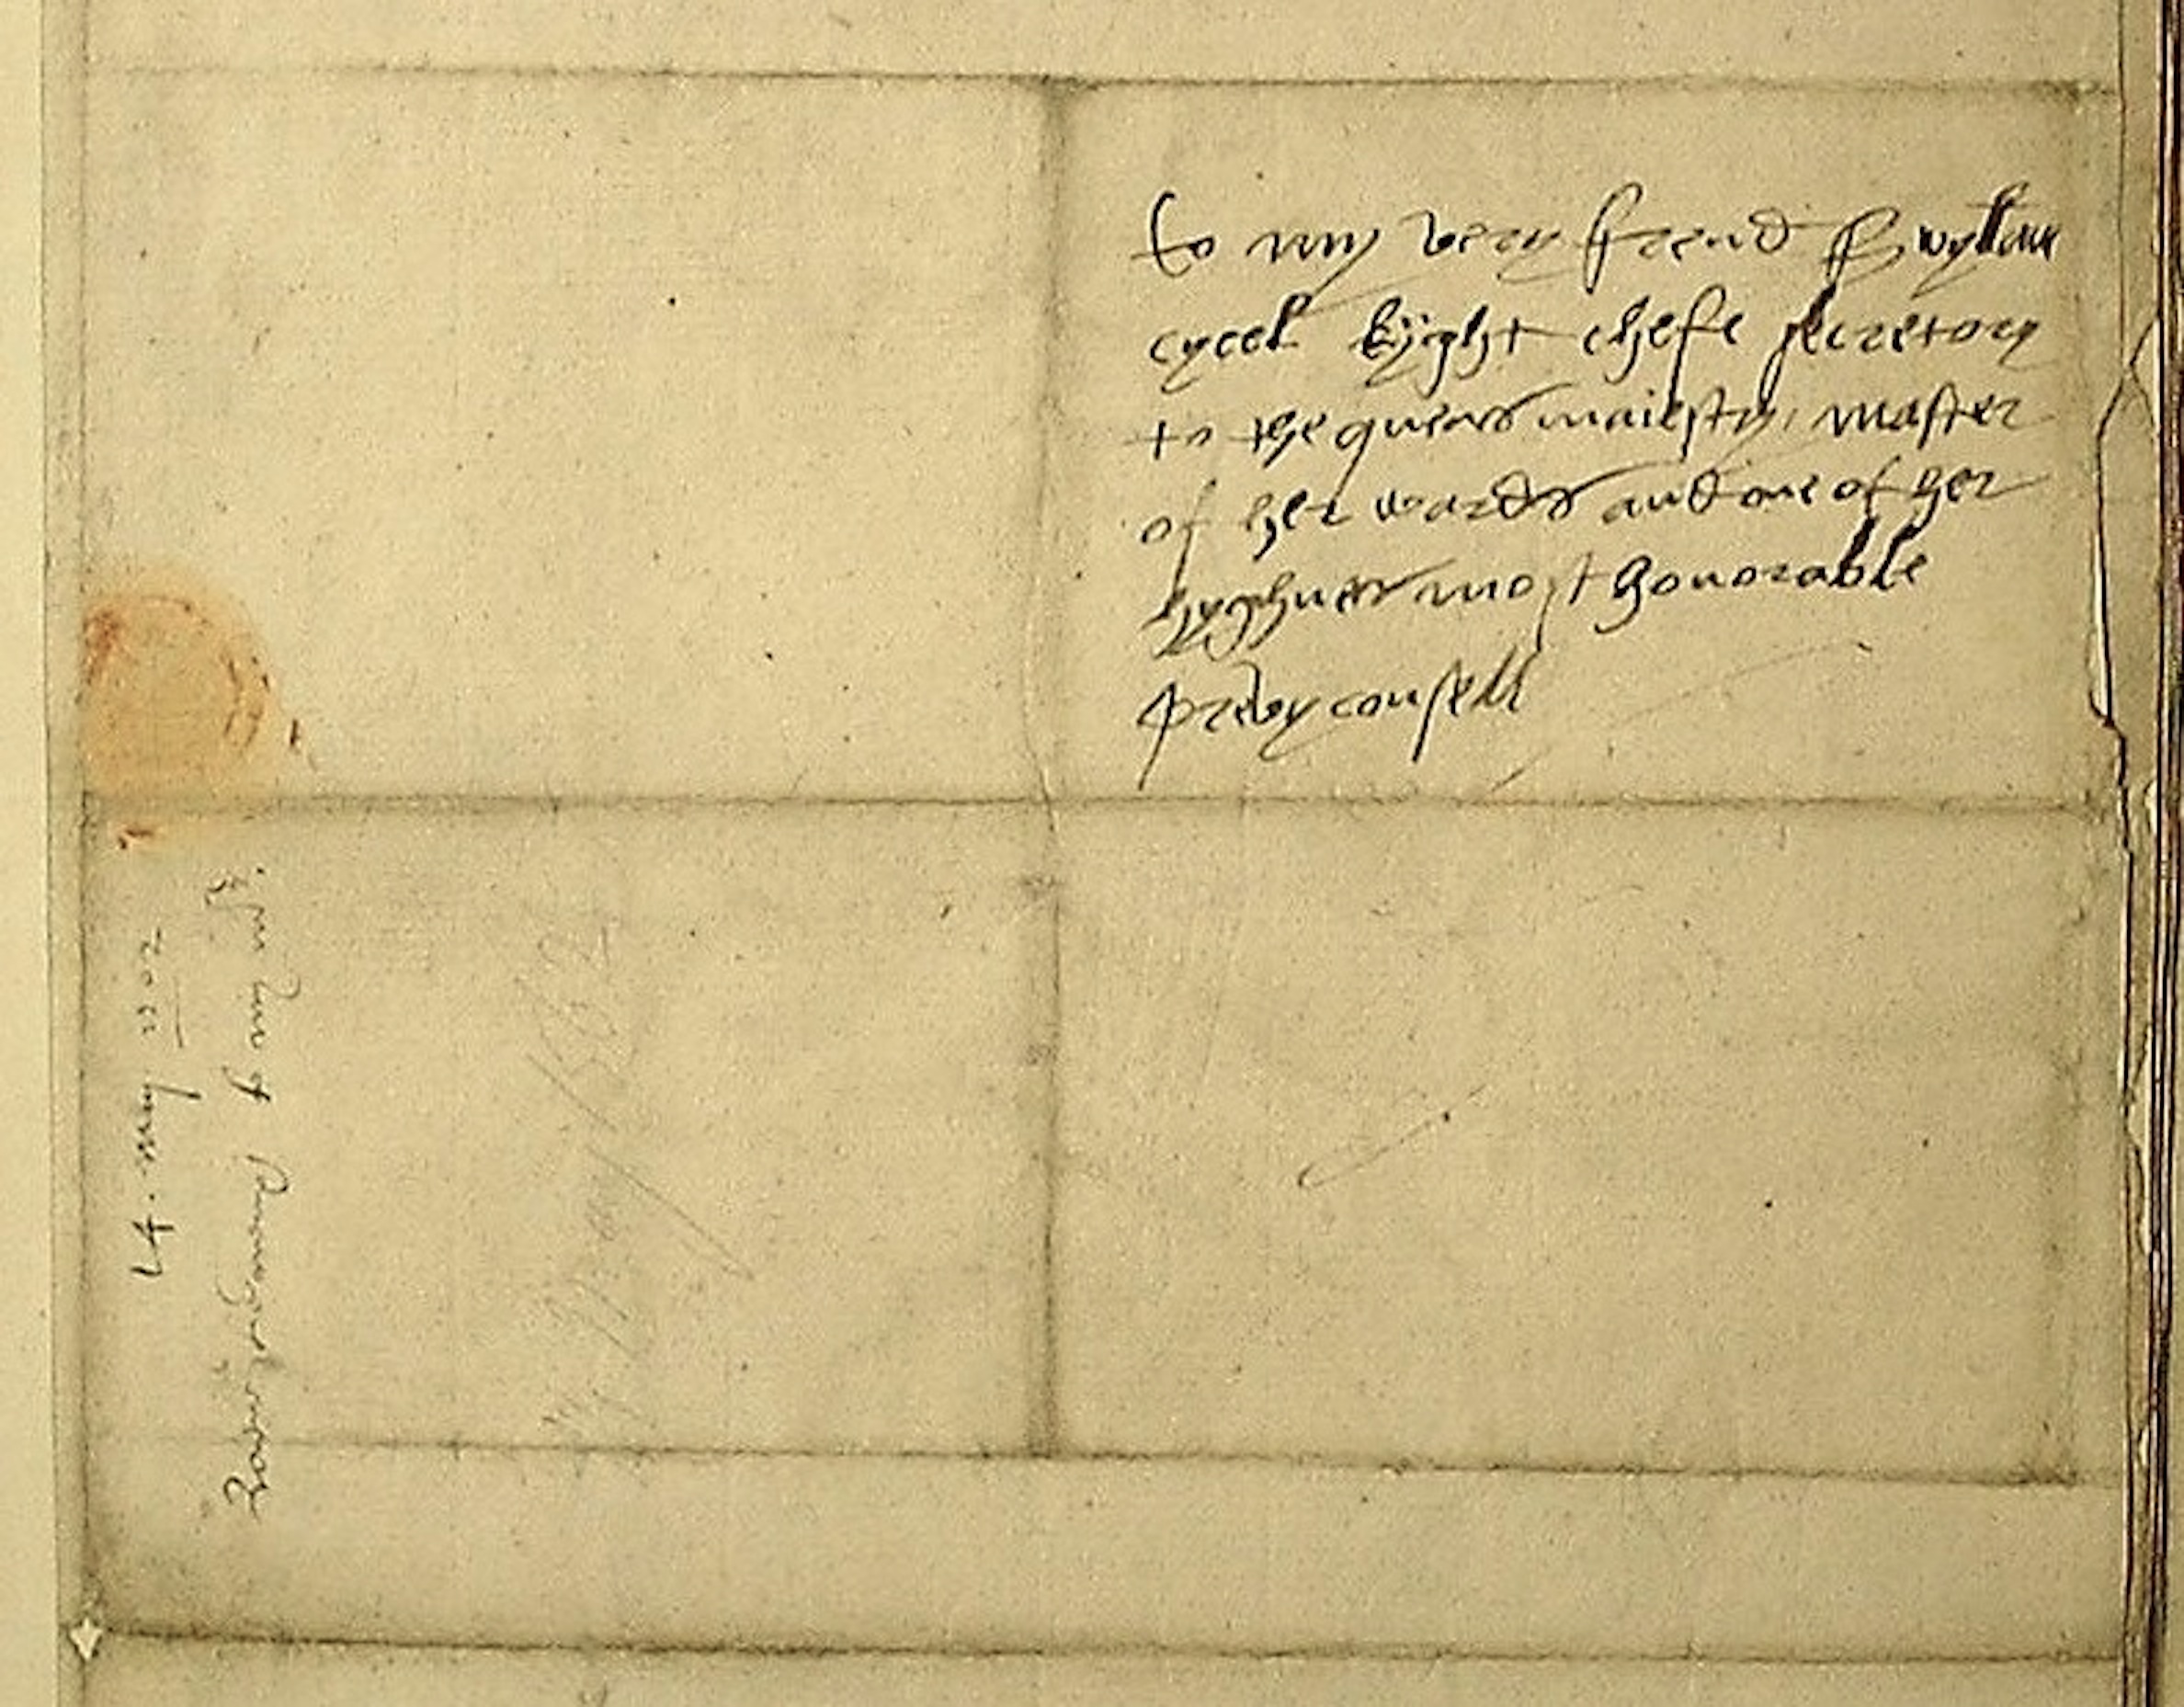 to my very frend Sr wyllm
cycell kyght chefe secretory
to the quens maiesty, master
of her wards and one of her
hyghnes most honorable
prevy consell
14. may
to my mr.